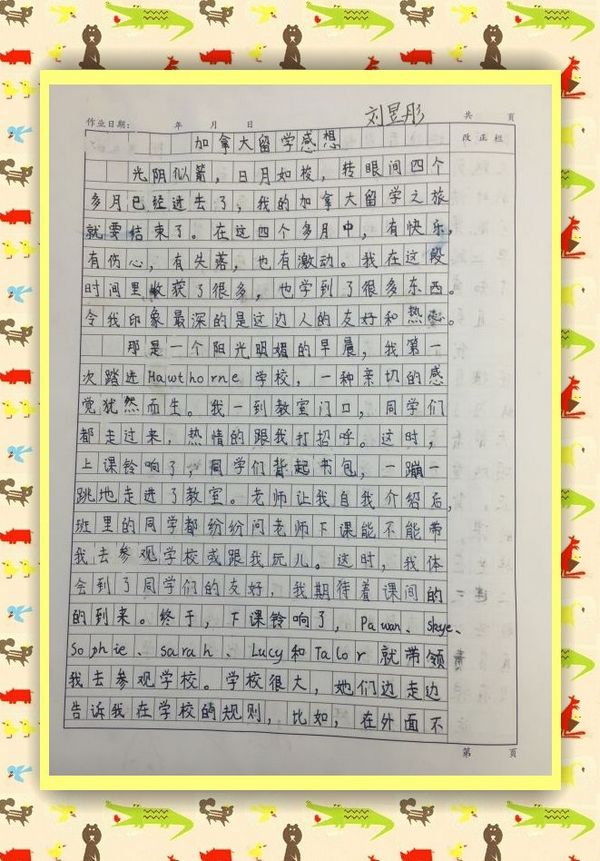 刘昱彤
作业日期： 年 月 日 共 页
加拿大留学感想 改正栏
光阴似箭，日月如梭，转眼间四个
多月已经过去了，我的加拿大留学之旅
就要结束了。在这四个多月中，有快乐，
有伤心，有失落，也有激动。我在这段
时间里收获了很多，也学到了很多东西。
令我印象最深的是这边人的友好和热心。
那是一个阳光明媚的早晨，我第一
次踏进Hawthorne学校，一种亲切的感
觉犹然而生。我一到教室门口，同学们
都走过来，热情的跟我打招呼。这时，
上课铃响了，同学们背起书包，一蹦一
跳地走进了教室。老师让我自我介绍后，
班里的同学都纷纷问老师下课能不能带
我去参观学校或跟我玩儿。这时，我体
会到了同学们的友好，我期待着课间的
的到来。终于，下课铃响了，Pawan、skye、
Sophie、sarah、Lucy和Talor就带领
我去参观学校。学校很大，她们边走边
告诉我在学校的规则，比如，在外面不
第 页